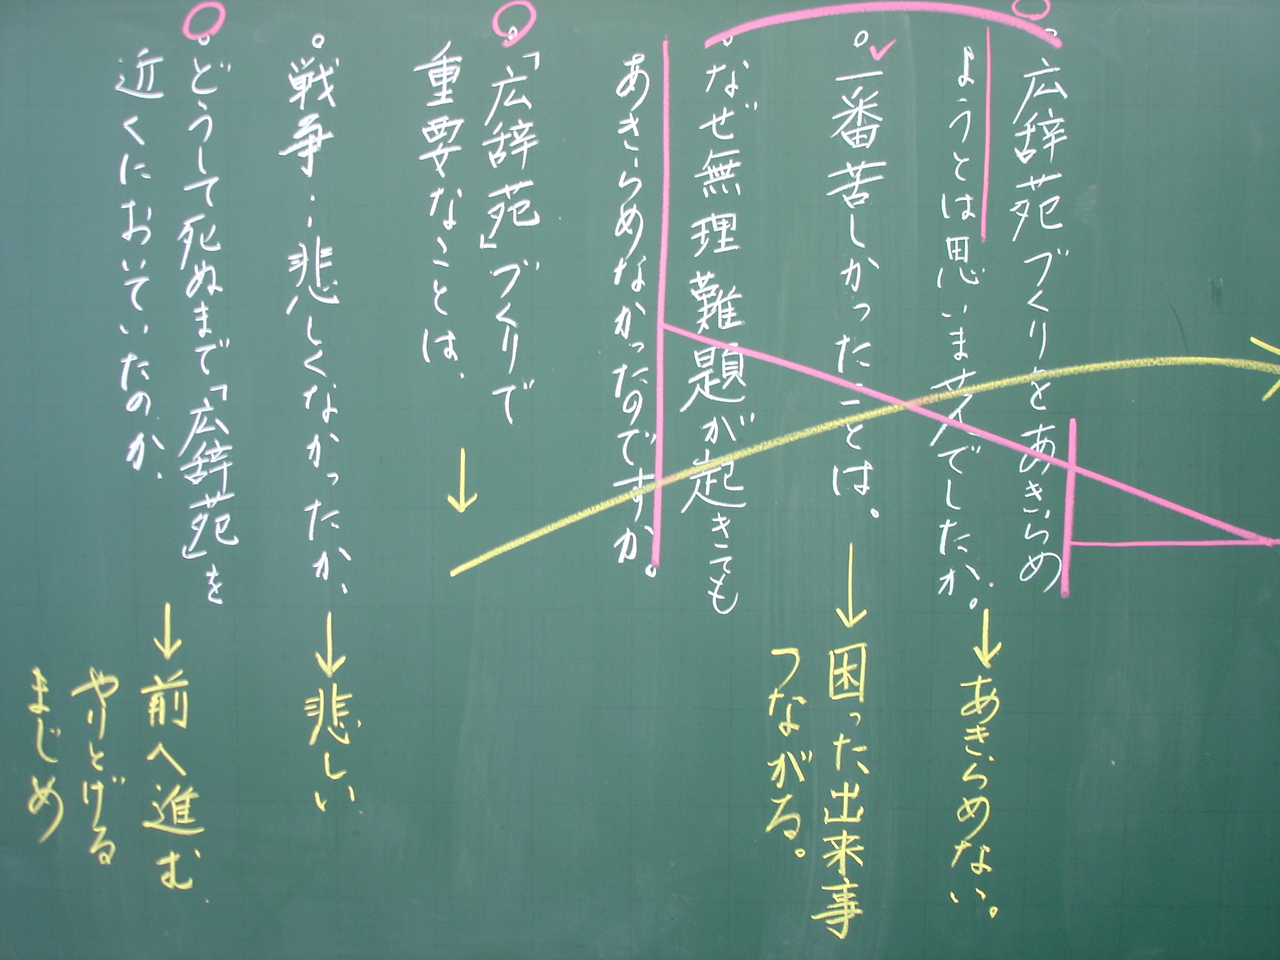 広辞苑づくりをあきらめ
ようとは思いませんでしたか。
あきらめない。
一番苦しかったことは。
困った出来事
つながる。
なぜ無理難題が起きても
あきらめなかったのですか。
「広辞苑」づくりで
重要なことは、
戦争…悲しくなかったか、
悲しい
どうして死ぬまで「広辞苑」を
近くにおいていたのか、
前へ進む
やりとげる
まじめ